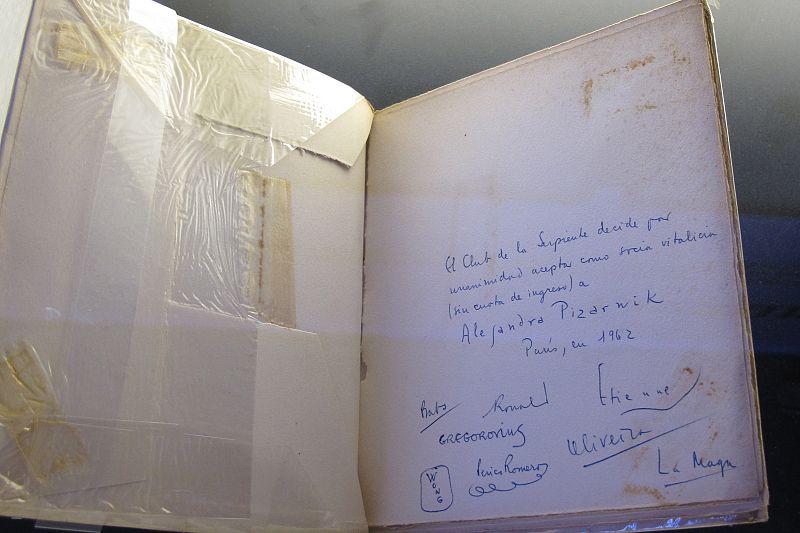 El Club de la Serpiente decide por
unanimidad aceptar como socia vitalicia
(sin cuota de ingreso) a
Alejandra Pizarnik
París, en 1962
Babs Ronald Etienne
GREGOROVIUS Oliveira
WONG Perico Romero La Maga